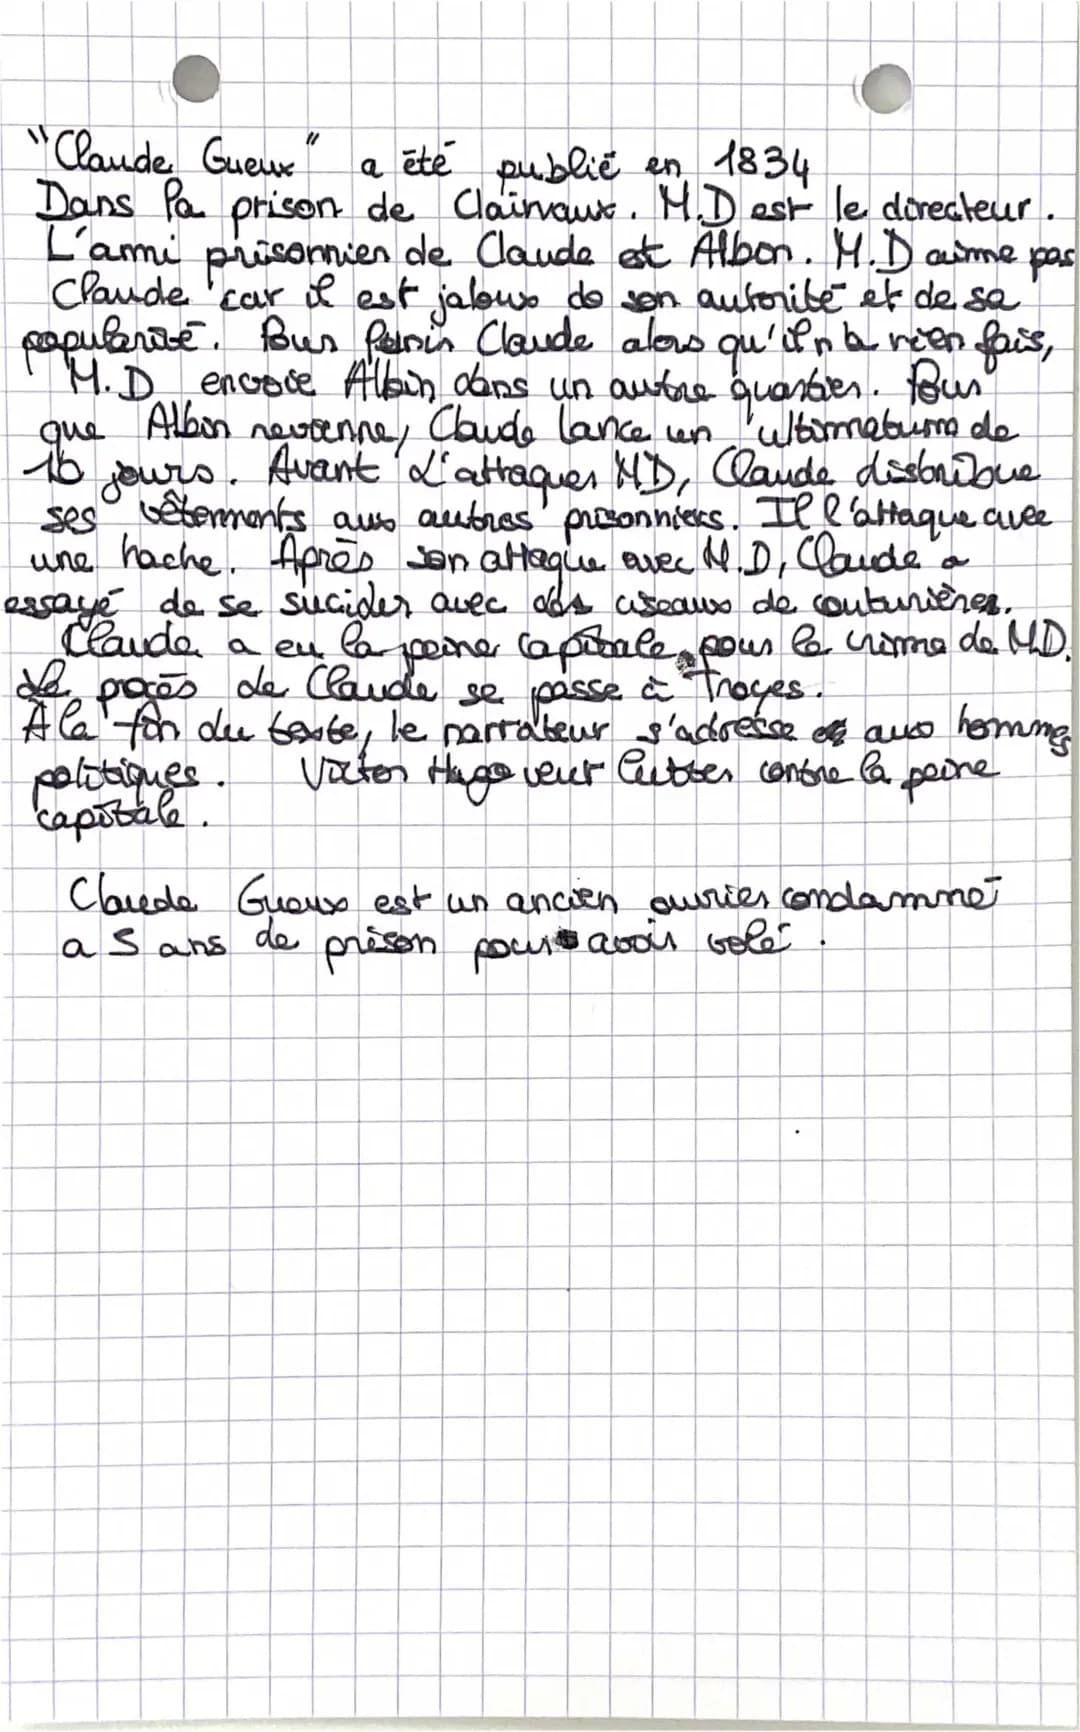 "Claude Gueux" a été publié en 1834
Dans la prison de Clairvaux. M.D est le directeur.
L'ami prisonnier de Claude est Albin. M.D aime pas
Claude car il est jaloux de son autorité et de sa
popularité. Pour punir Claude alors qu'il n'a rien fais,
M.D envoie Albin dans un autre quartier. Pour
que Albin revienne, Claude lance un ultimatum de
jours. Avant d'attaquer MD, Claude distribue
ses vêtements aux autres prisonniers. Il l'attaque avec
une hache. Après son attaque avec M.D, Claude a
essayé de se sucider avec des ciseaux de couturières.
Claude a eu la peine capitale pour le crime de MD.
Le procès de Claude se passe à Troyes.
À la fin du texte, le narrateur s'adresse aux hommes
politiques. Victor Hugo veut lutter contre la peine
capitale.
Claude Gueux est un ancien ouvrier condamné
a 5 ans de prison pour avoir volé.